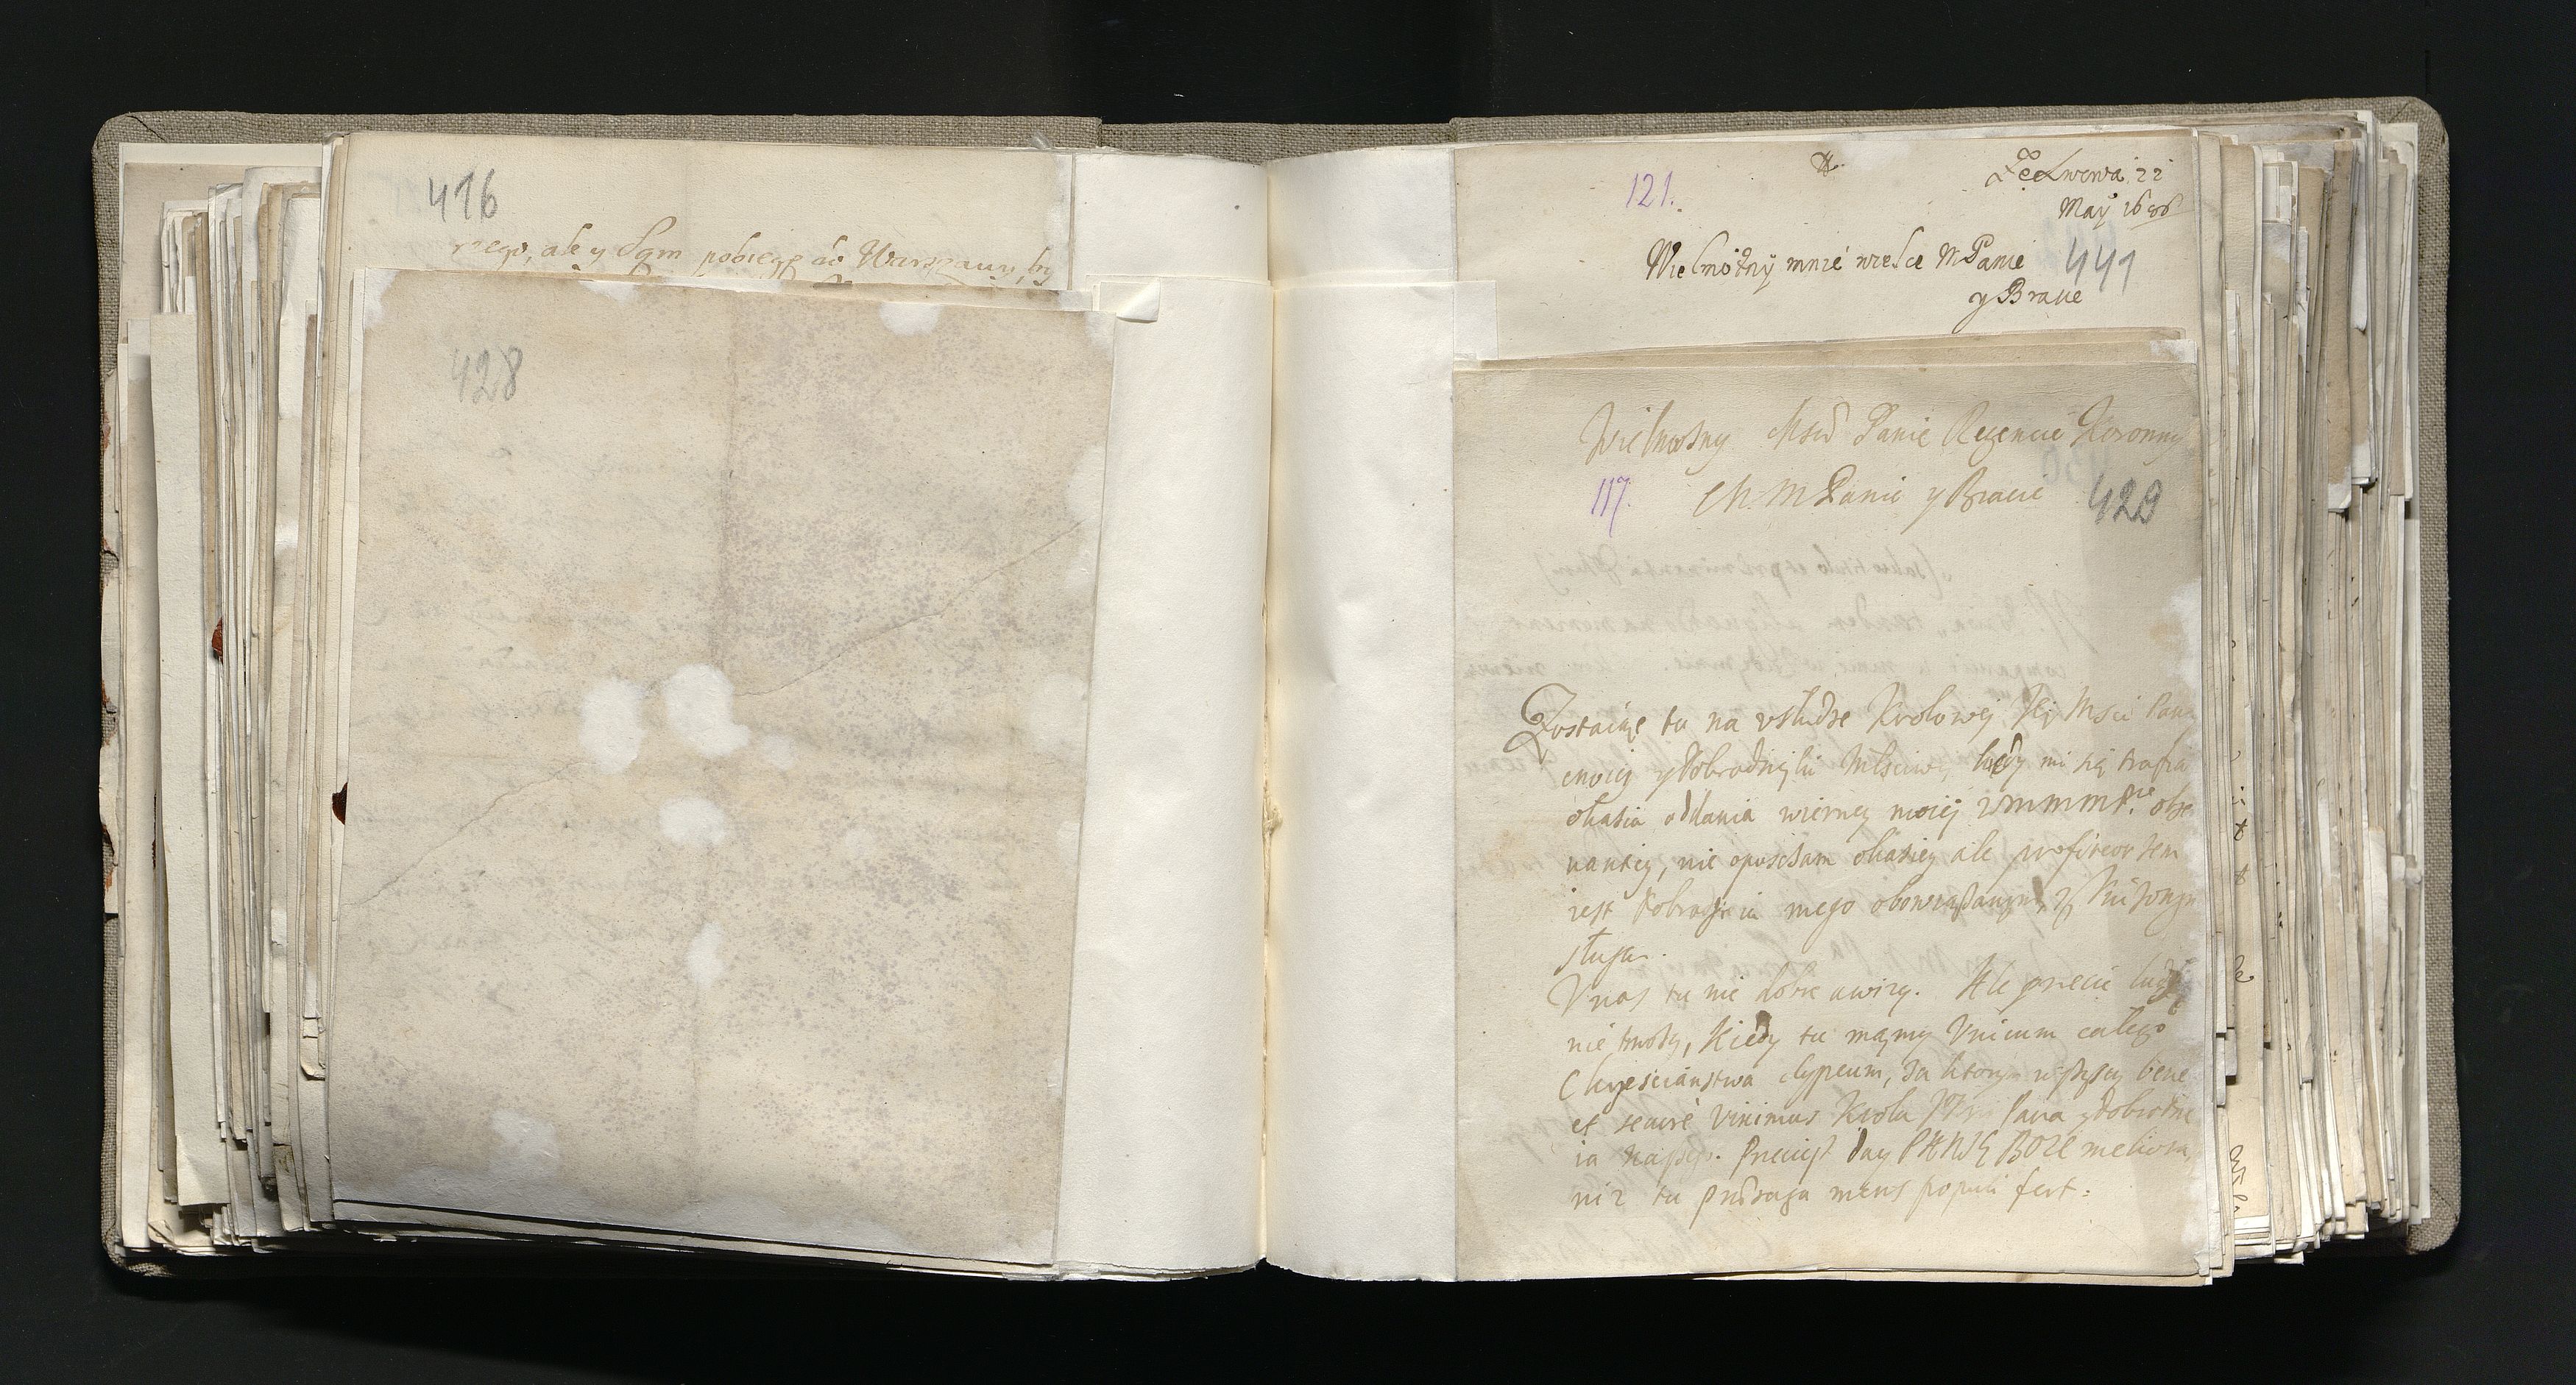 416
rego, ale y Sam pobiegę do Warszawy, by
428
121.
Ze Lwowa 22
May 1686
Wielmożny mnie wielce M Panie
441
y Bracie
Wielmożny Msci Panie Regencie Koronny
117. M. M Panie y Bracie 429
Zostaiąc tu na usłudze Krolowej Jej Msci Pani
moiej y Dobrodziejki Młsciwej, kiedy mi się trafia
okasia oddania wiernej moiej WMMMP. obser
vantiey, nie opusczam okasiey ale profiteor żem
iest Dobrodzieia mego obowiązanym y
sługa.
U nas tu nie dobre awizy. Ale przecie ludzi
nie trwożą, kiedy tu mamy Unicum całego
Chrzescianstwa clypeum, za ktorym wszyscy bene
et secure vivimus Krola Pana y Dobrodzie
ia naszego. Przecięż day PANIE BOŻE meliora,
niż tu praesaga mens populi fert.